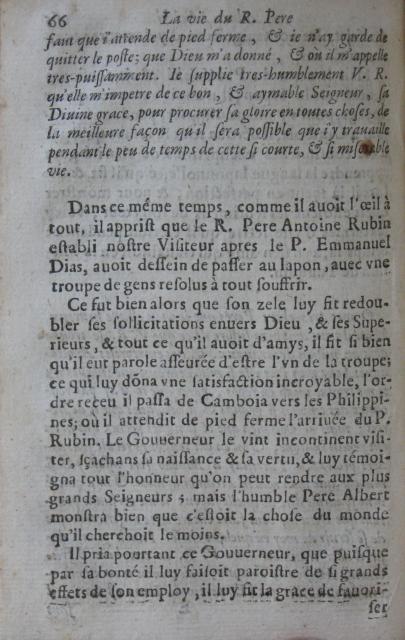 66 La vie du R. Pere
faut que i'attende de pied ferme, & ie n'ay garde de
quitter le poste; que Dieu m'a donné, & où il m'appelle
tres-puissamment. Ie supplie tres-humblement V. R.
qu'elle m'impetre de ce bon, & aymable Seigneur, sa
Diuine grace, pour procurer sa gloire en toutes choses, de
la meilleure façon qu'il sera possible que i'y trauaille
pendant le peu de temps de cette si courte, & si miserable
vie.
Dans ce méme temps, comme il auoit l'œil à
tout, il apprist que le R. Pere Antoine Rubin
establi nostre Visiteur apres le P. Emmanuel
Dias, auoit dessein de passer au Iapon, auec vne
troupe de gens resolus à tout souffrir.
Ce fut bien alors que son zele luy fit redou-
bler ses sollicitations enuers Dieu, & ses Supe-
rieurs, & tout ce qu'il auoit d'amys, il fit si bien
qu'il eut parole asseurée d'estre l'vn de la troupe;
ce qui luy dõna vne satisfaction incroyable, l'or-
dre receu il passa de Camboia vers les Philippi-
nes; où il attendit de pied ferme l'arriuée du P.
Rubin. Le Gouuerneur le vint incontinent visi-
ter, sçachans sa naissance & sa vertu, & luy témoi-
gna tout l'honneur qu'on peut rendre aux plus
grands Seigneurs; mais l'humble Pere Albert
monstra bien que c'estoit la chose du monde
qu'il cherchoit le moins.
Il pria pourtant ce Gouuerneur, que puisque
par sa bonté il luy faisoit paroistre de si grands
effets de son employ, il luy fit la grace de fauori-
ser